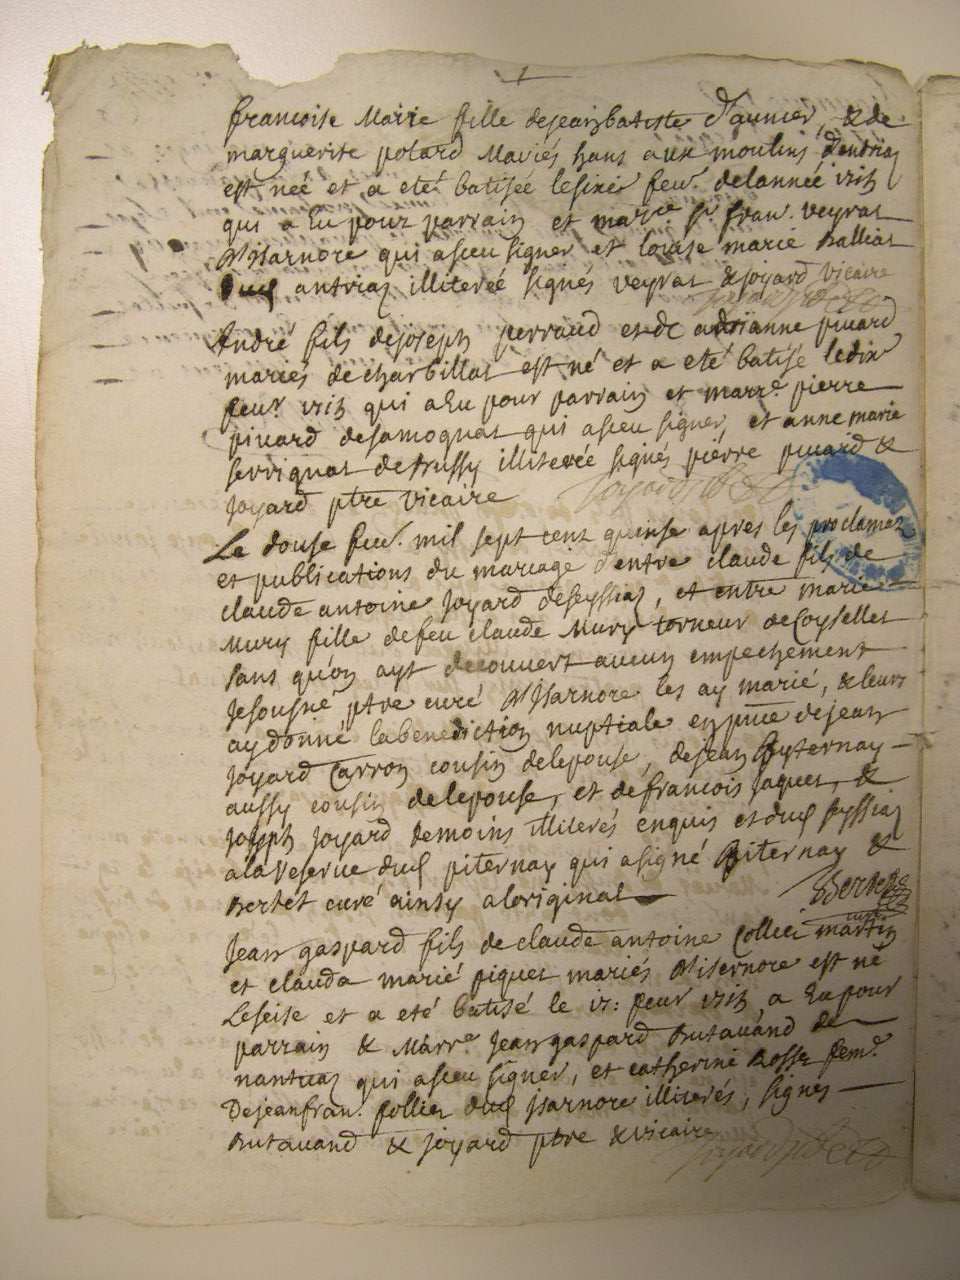 francoise Marie fille dejean batiste Daunier, & de
marguerite polard Mariés hans aux moulins dandrias
est née et a eté batisée lesixie feur. delannée 1715
qui a Eu pour parrain et marre sr. fran. veyrat
Disarnore qui asceu signer et louise marie Balliat
Dud antrias illiterée signés veyrat & Joyard vicaire
André fils dejoseph perraud et de adrianne puvard
mariés de charbillat est né et a eté batisé ledix
feur 1715 qui aEu pour parrain et marre. pierre
pivard desamognat qui asceu signer, et anne marie
serrignat de Bussy illiterée signés pierre puvard &
Joyard ptre vicaire
Le douse feur. mil sept cent quinse apres les proclamaõ
et publications du mariage d'entre claude fils de
claude antoine Joyard deseyssias, et entre marie
Mury fille defeu claude Mury torneur deCoysellet
sans qu'on ayt decouvert aucun empechement
Jesousné ptre curé Disarnore les ay marié, & leurs
ay donné labenediction nuptiale en pnce dejean
Joyard Carron cousin delepouse, dejean Pyternay
aussy cousin delepouse, et defrancois Jaquet, &
Joseph Joyard demoins illiterés enquis et dud seyssias
alareserve dud piternay qui asigné Piternay &
Bertet curé ainsy aloriginal
Bertet
curé
Jean gaspard fils de claude antoine Collet martin
et clauda marie piquet mariés Disernore est né
Leseise et a eté batisé le 17: feur 1715 a Eu pour
parrain & Marre. Jean gaspard Butavand de
nantuas qui asceu signer, et catherine Rosse feme.
Dejeanfran. follier dud Isarnore illiterés, signés
Butavand & Joyard ptre & vicaire